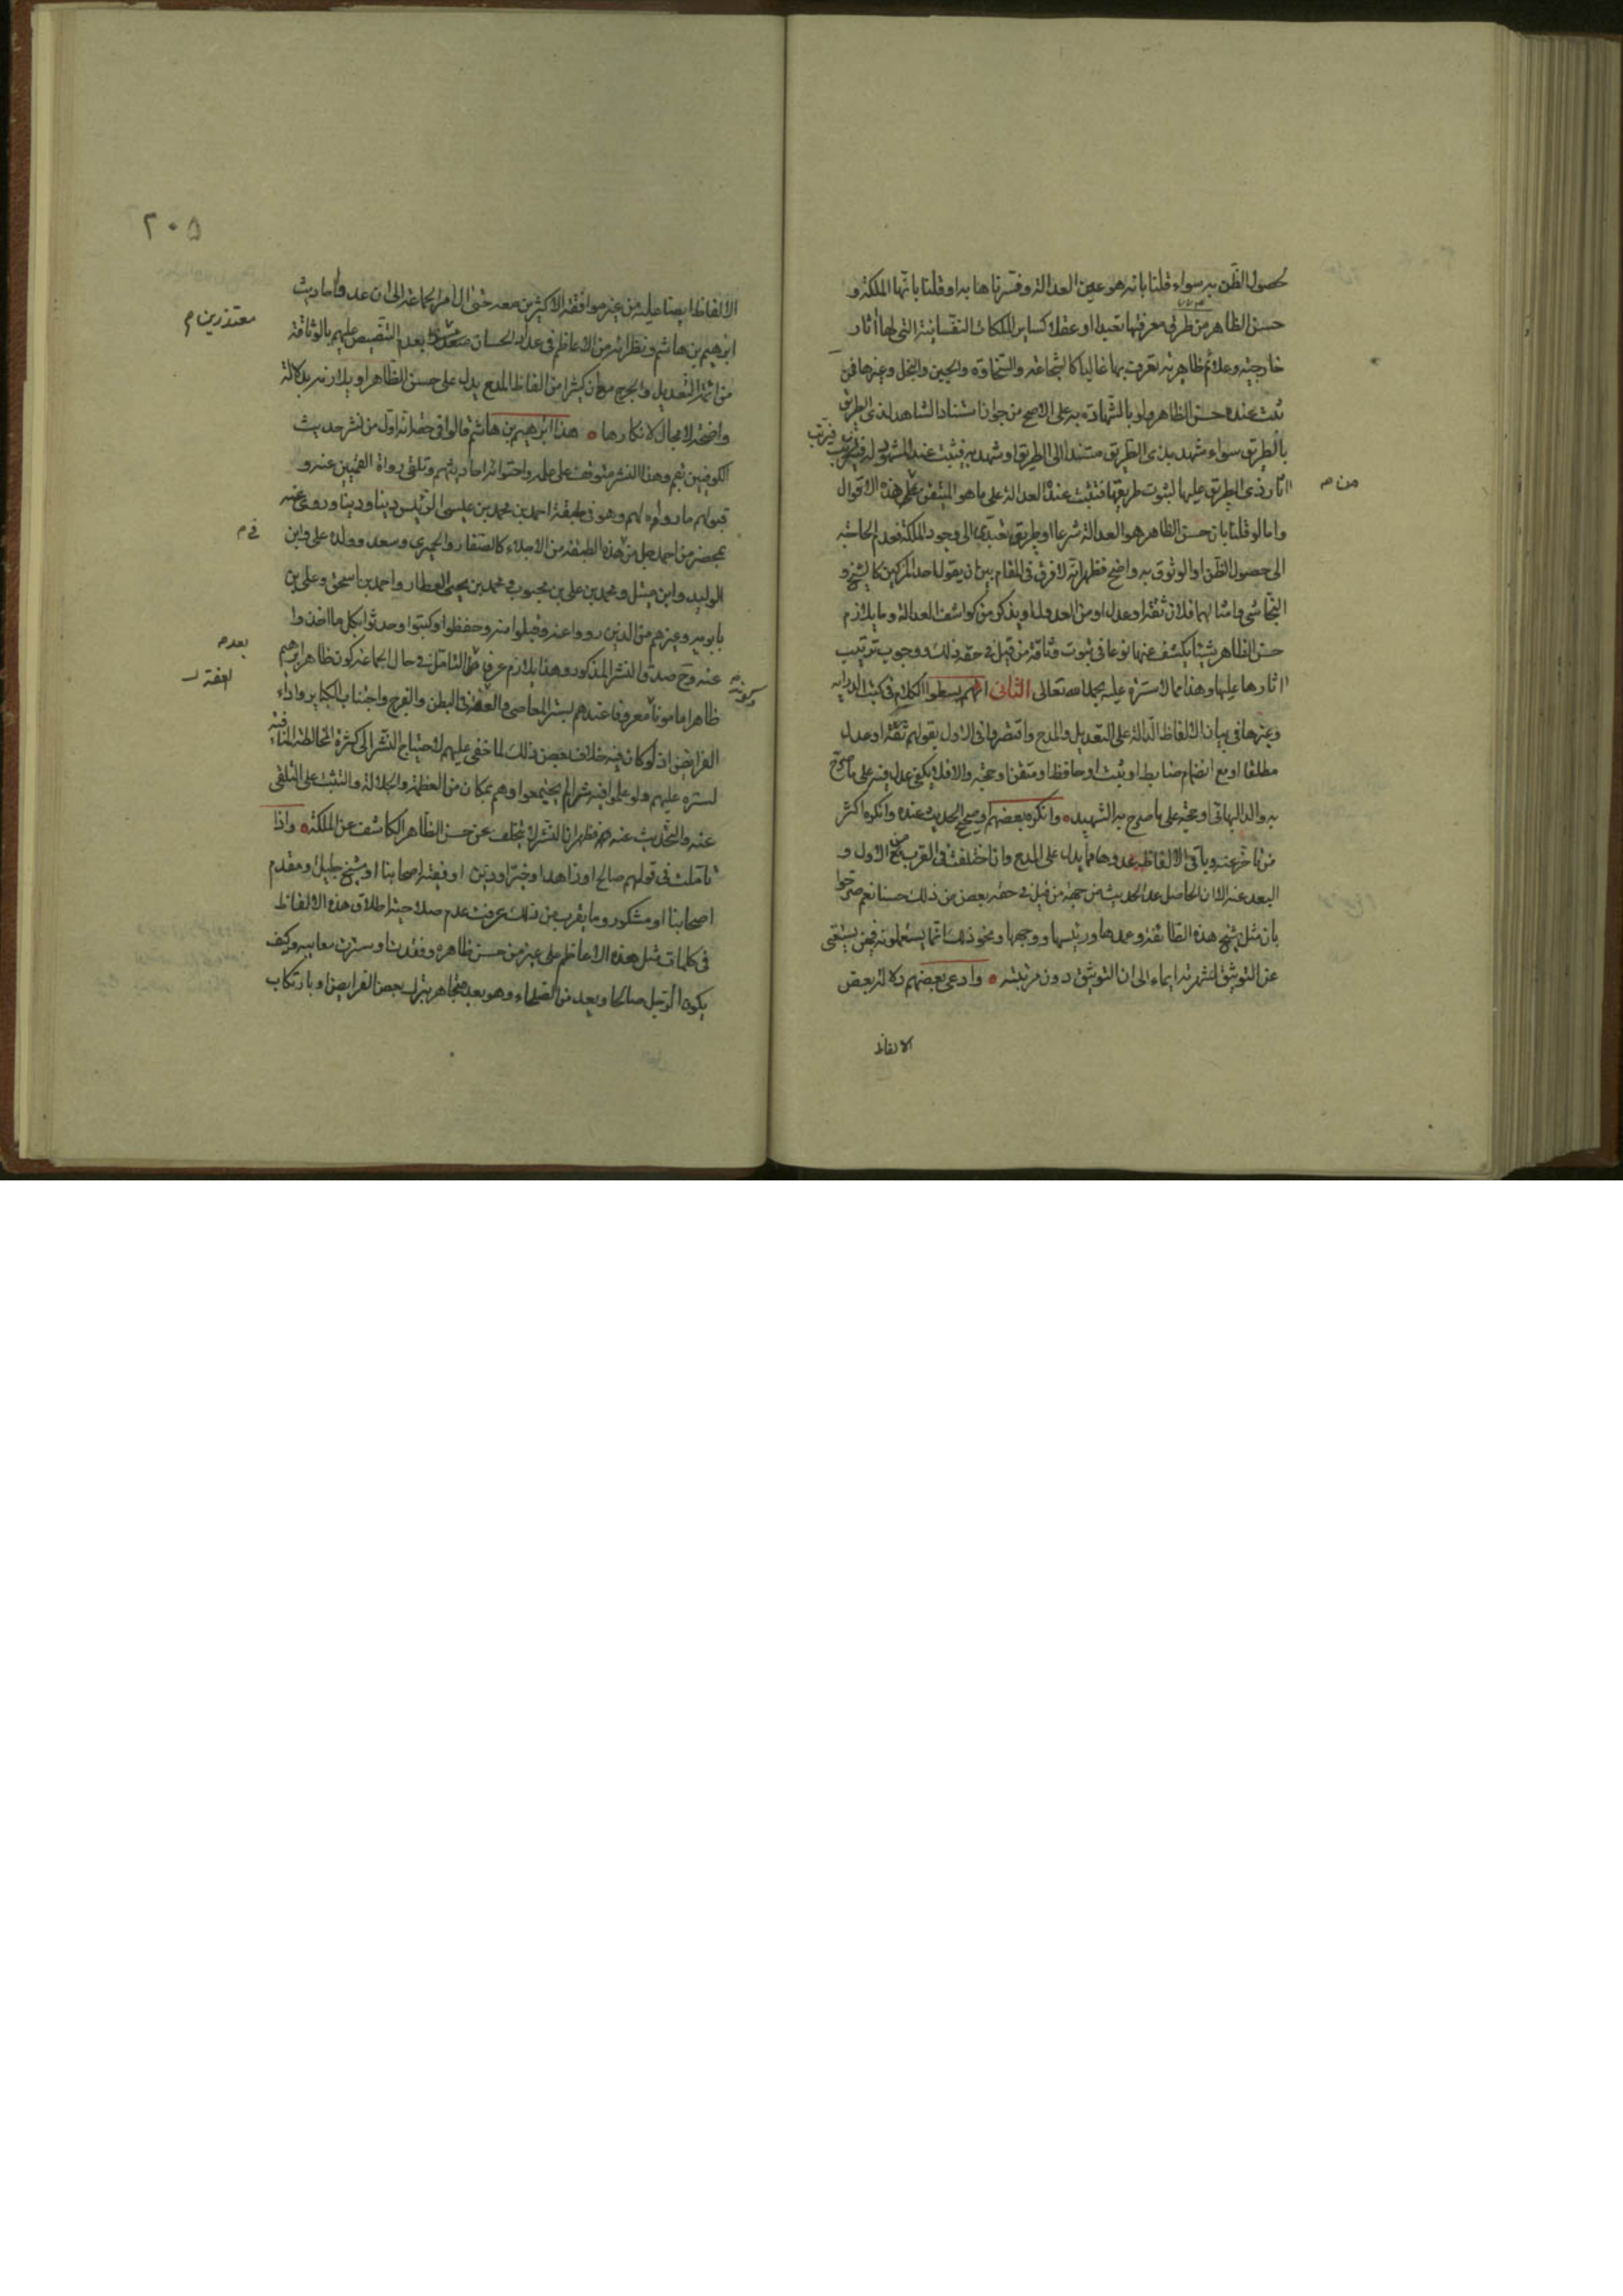 حصول الظن به سواء قلنا بانه هو عين العدالة وفسرناها به او قلنا بانها الملكة و
حسن الظاهر من طرق معرفتها تعبدا او عقلا كساير الملكات النفسانية التي لها آثار
خارجية وعلائم ظاهرية تعرف بها غالبا كالشجاعة والسخاوة والجبن والبخل وغيرها فمن
ثبت عنده حسن الظاهر ولو بالشهادة به على الاصح من جواز استناد الشاهد لذي الطريق
بالطريق سواء شهد بذي الطريق مستندا الى الطريق او شهد به فيثبت عند المشهود له فيترتب
آثار ذي الطريق عليها لثبوت طريقها فتثبت عنده العدالة على ما هو المتيقن على هذه الاقوال
من م
واما لو قلنا بان حسن الظاهر هو العدالة شرعا او طريق تعبدي الى وجود الملكة فعدم الحاجة
الى حصول الظن او الوثوق به واضح فظهر انه لا فرق في المقام بين ان يقول احد المزكين كالشيخ و
النجاشي وامثالهما فلان ثقة او عدل او من العدول او يذكر من كواشف العدالة وما يلازم
حسن الظاهر شيئا يكشف عنها نوعا في ثبوت وثاقة من قيل في حقه ذلك ووجوب ترتيب
آثارها عليها وهذا مما لا سترة عليه بحمد الله تعالى الثاني انهم بسطوا الكلام في كتب الدراية
وغيرها في بيان الالفاظ الدالة على التعديل والمدح واقتصروا في الاول بقولهم ثقة او عدل
مطلقا او مع انضمام ضابط او ثبت او حافظ او متقن او حجة والا فلا يكفي عدل فيه على ما صرح
به والد البهائي او حجة على ما صرح به الشهيد وانكره بعضهم وصحيح الحديث عنده وانكره اكثر
من تاخر عنه وباقي الالفاظ عدوها مما يدل على المدح وان اختلفت في القرب من الاول و
البعد عنه الا ان الحاصل عد الحديث من جهة من قيل في حقه بعض من ذلك حسنا نعم صرحوا
بان مثل شيخ هذه الطائفة وعمدها ورئيسها ووجهها ونحو ذلك مما يستعملونه فيمن يستغنى
عن التوثيق لشهرته ايماء الى ان التوثيق دون مرتبته وادعى بعضهم دلالة بعض
الالفاظ
٢٠٥
الالفاظ ايضا عليه من غير موافقة الاكثرين معه حتى آل امر الجماعة الى ان عدوا احاديث
معتذرين م
ابرهيم بن هاشم ونظرائه من الاعاظم في عداد الحسان بعدم التنصيص عليهم بالوثاقة
من ائمة التعديل والجرح مع ان كثيرا من الفاظ المدح يدل على حسن الظاهر او يلازمه بدلالة
واضحة لا مجال لانكارها هذا ابرهيم بن هاشم قالوا في حقه انه اول من نشر حديث
الكوفيين بقم وهذا النشر متوقف على علمه واحتوائه احاديثهم وتلقي رواة القميين عنه و
قبولهم ما رواه لهم وهو في طبقة احمد بن محمد بن عيسى الرئيس دينا ودنيا وروى عنه
في م
بمحضر من احمد جل من هذه الطبقة من الاجلاء كالصفار والحميري وسعد وولده علي وابن
الوليد وابن متيل ومحمد بن علي بن محبوب ومحمد بن يحيى العطار واحمد بن اسحق وعلي بن
بابويه وغيرهم من الذين رووا عنه وقبلوا منه وحفظوا وكتبوا وحدثوا بكل ما اخذوا
بعد م
عنه وح صدق النشر المذكور وهذا يلازم عرفا التامل في حال الجماعة كون ظاهر ابرهيم
وكونه م
ظاهرا مامونا معروفا عندهم بستر المعاصي والعفة في البطن والفرج واجتناب الكباير واداء
الفرايض اذ لو كان فيه خلاف بعض ذلك لما خفي عليهم لاحتياج النشر الى كثرة المخالطة المنافية
لستره عليهم ولو علموا فيه شرا لم يجتمعوا وهم بمكان من العظمة والجلالة والتثبت على التلقي
عنه والتحديث عنه فظهر ان النشر لا يتخلف عن حسن الظاهر الكاشف عن الملكة واذا
تاملت في قولهم صالح او زاهد او خير او دين او فقيه اصحابنا او شيخ جليل او مقدم
اصحابنا او مشكور وما يقرب من ذلك عرفت عدم صلاحية اطلاق هذه الالفاظ
في كلمات مثل هذه الاعاظم على غير من حسن ظاهره وفقدت او سترت معايبه وكيف
يكون الرجل صالحا ويعد من الصلحاء وهو بعد متجاهر بترك بعض الفرايض او بارتكاب